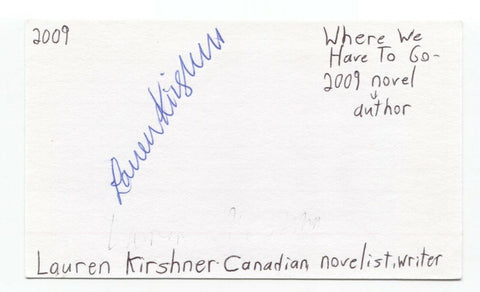 2009
Where We
Have To Go-
2009 novel
↓
author
Lauren Kirshner
Lauren Kirshner-Canadian novelist, writer